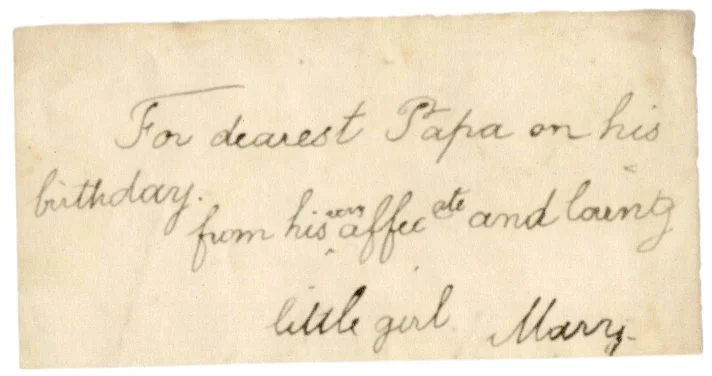 For dearest Papa on his
birthday.
from his very affec ate and loving
little girl Mary.